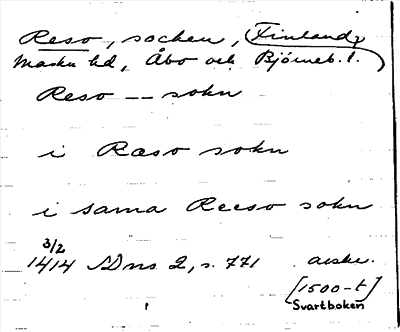 Reso, socken, Finland,
Masku hd, Åbo och Björneb. l.
Reso -- sokn
i Raso sokn
i sama Reeso sokn
3/2
1414 SDns 2, s. 771 avskr.
[1500-t]
Svartboken